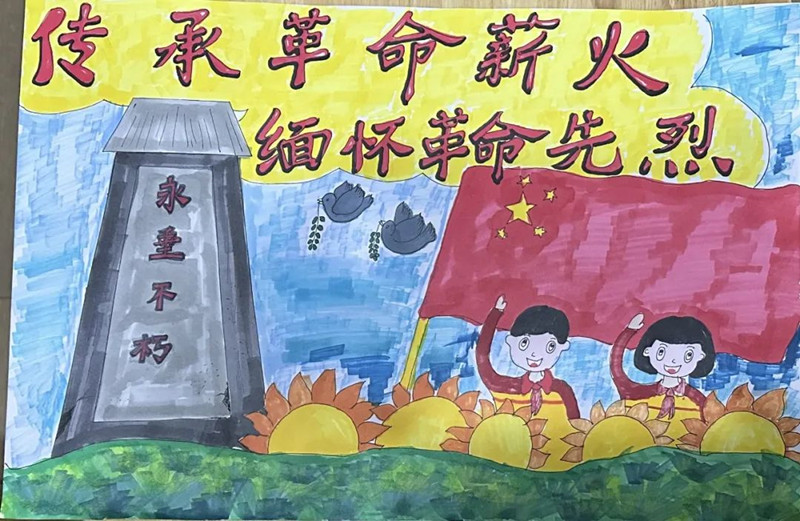 传承革命薪火
缅怀革命先烈
永垂不朽